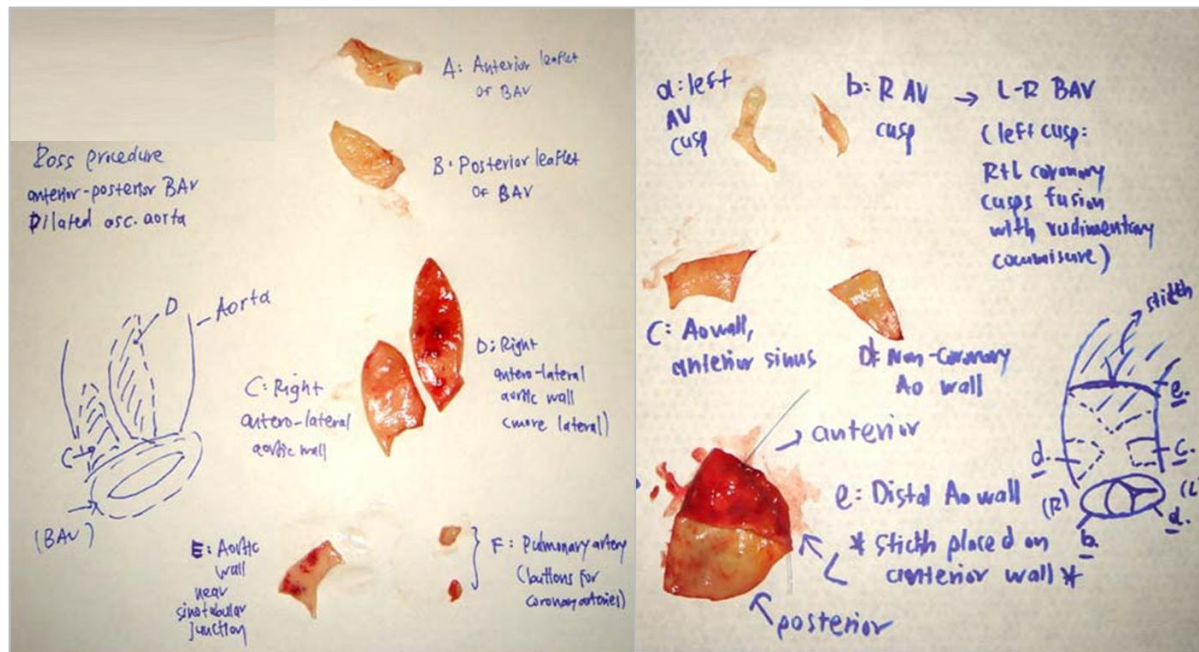 Ross procedure
anterior-posterior BAV
Dilated asc. aorta
A: Anterior leaflet
of BAV
B: Posterior leaflet
of BAV
D
Aorta
C
(BAV)
C: Right
antero-lateral
aortic wall
D: Right
antero-lateral
aortic wall
(more lateral)
E: Aortic
wall
near
sinotubular
junction
F: Pulmonary artery
(buttons for
coronary arteries)
a: left
AV
cusp
b: R AV
cusp
→ L-R BAV
(left cusp:
R+L coronary
cusps fusion
with rudimentary
commisure)
C: Ao wall,
anterior sinus
d: Non-Coronary
Ao wall
stitch
e.
d.
c.
(R)
(L)
b.
a.
anterior
e: Distal Ao wall
* Stitch placed on
anterior wall *
posterior